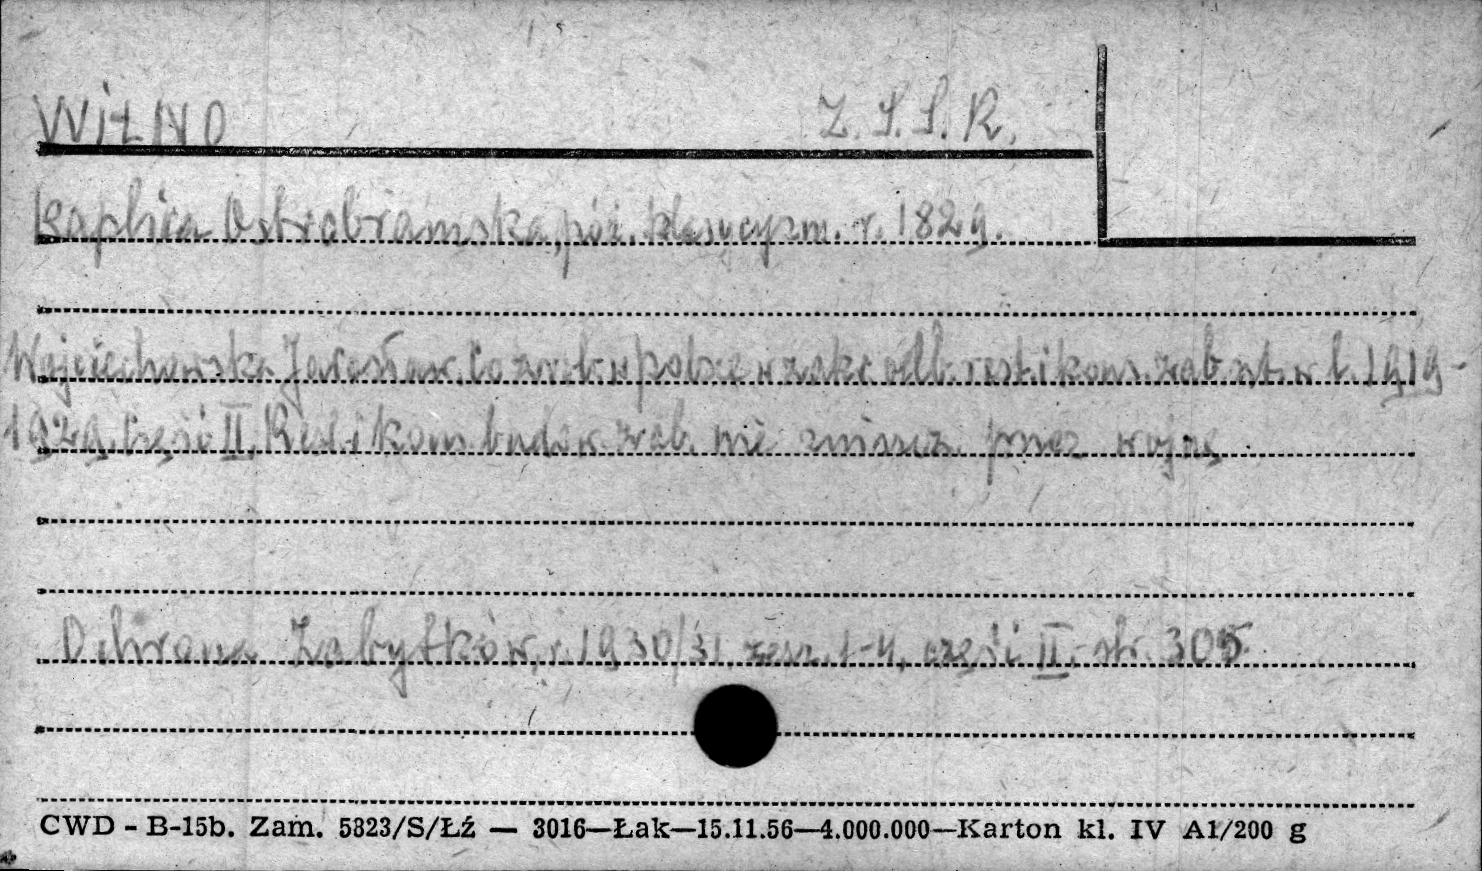 WIŁNO Z.S.S.R.
Kaplica Ostrobramska, póź. klasycyzm. r. 1829.
Wojciechowski Jarosław. Co zrob. w Polsce w zakr. odb. rest. i kons. zab. szt. w l. 1919-
1929. Część II. Rest. i kons. budow. zab. nie zniszcz. przez wojnę
Ochrona Zabytków, r. 1930/31, zesz. 1-4, część II, str. 305
CWD - B-15b. Zam. 5823/S/Łź — 3016—Łak—15.11.56—4.000.000—Karton kl. IV A1/200 g